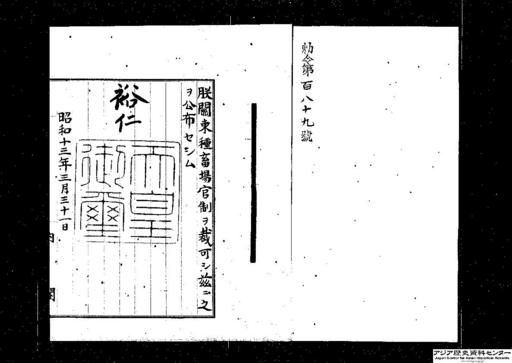 勅令第百八十九號
朕關東種畜場官制ヲ裁可シ茲ニ之
ヲ公布セシム
裕仁
天皇御璽
昭和十三年三月三十一日
内閣
アジア歴史資料センター
Japan Center for Asian Historical Records